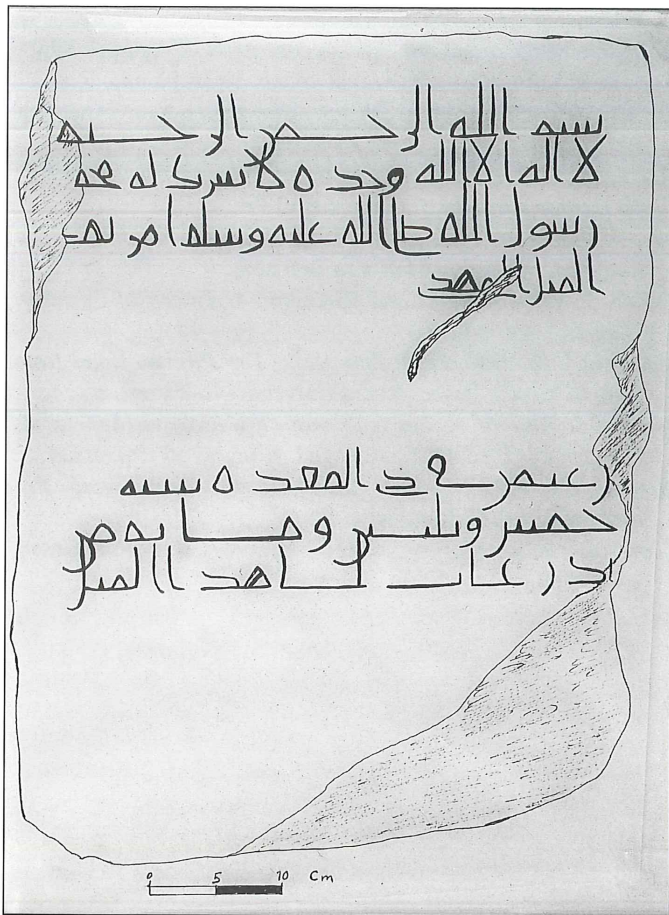 بسم الله الرحمن الرحيم
لا اله الا الله وحده لا شريك له محمد
رسول الله صلى الله عليه وسلم امر بهذ
الميل المهد
في ذي القعده سنه
خمس وثلثين ومايه من
اذرعات الى هذا الميل
0 5 10 Cm